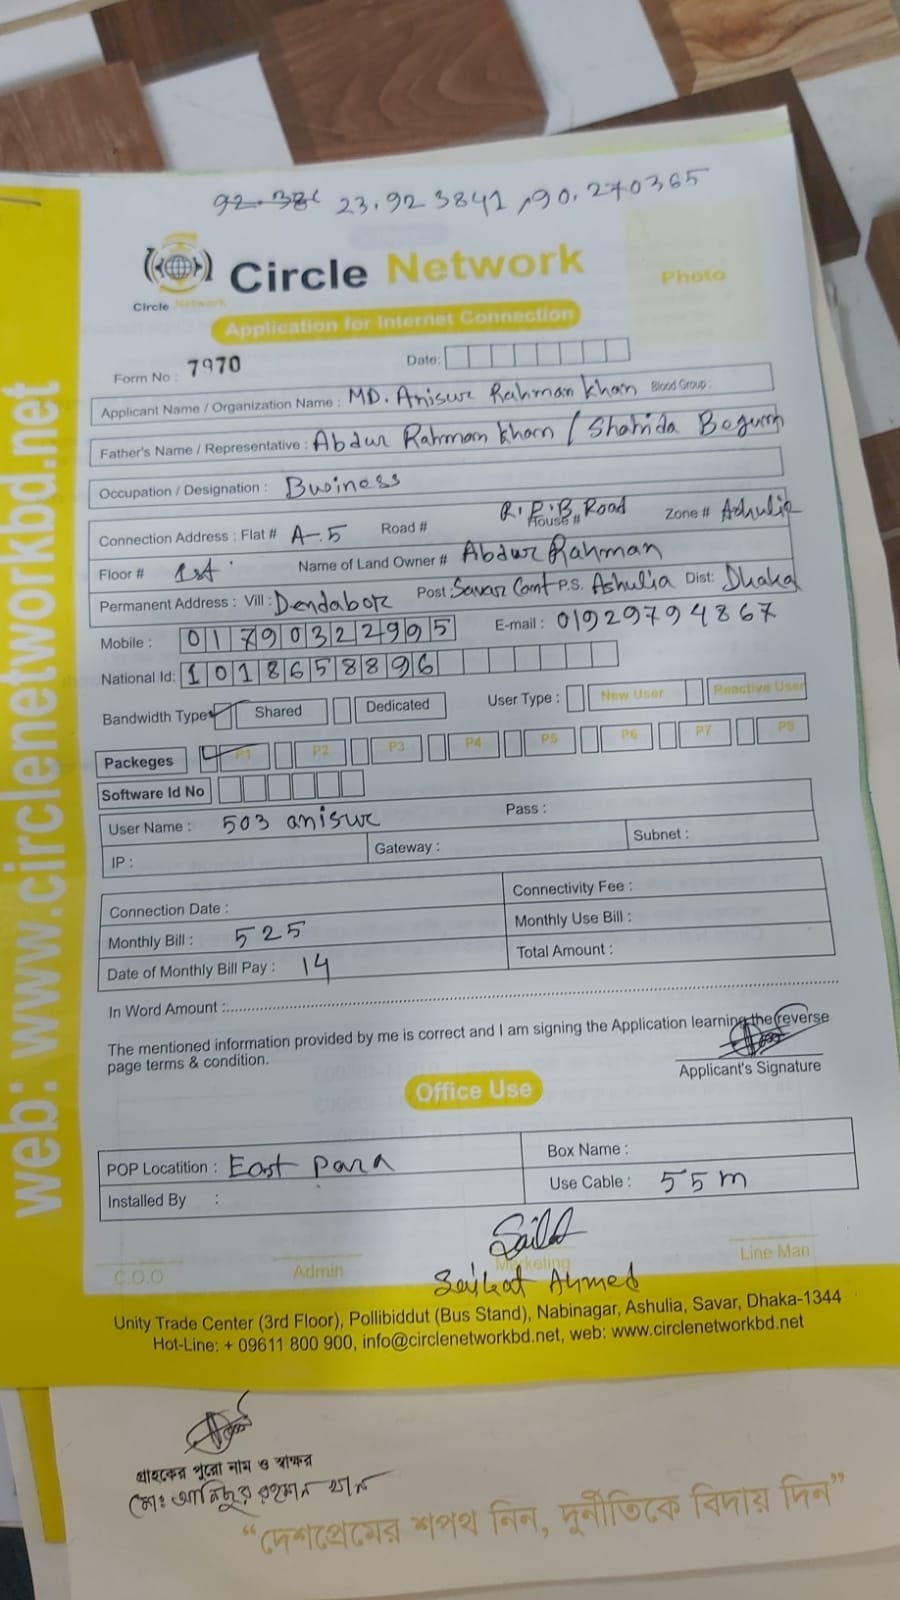 23.923841, 90.270365
Circle Network
Circle Network
Photo
Application for Internet Connection
Form No : 7970 Date:
Applicant Name / Organization Name : MD. Anisur Rahman Khan Blood Group :
Father's Name / Representative : Abdur Rahman Khan / Shahida Begum
Occupation / Designation : Business
Connection Address : Flat # A-5 Road # House # R.P.B. Road Zone # Ashulia
Floor # 1st Name of Land Owner # Abdur Rahman
Permanent Address : Vill : Dendabor Post : Savar Cant P.S. Ashulia Dist: Dhaka
Mobile : 01790322995 E-mail : 01929794867
National Id: 1018658896
Bandwidth Type Shared Dedicated User Type : New User Reactive User
Packeges P1 P2 P3 P4 P5 P6 P7 P8
Software Id No
User Name : 503 anisur Pass :
IP : Gateway : Subnet :
Connection Date : Connectivity Fee :
Monthly Bill : 525 Monthly Use Bill :
Date of Monthly Bill Pay : 14 Total Amount :
In Word Amount :
The mentioned information provided by me is correct and I am signing the Application learning the reverse
page terms & condition.
Applicant's Signature
Office Use
POP Locatition : East Para Box Name :
Installed By : Use Cable : 55m
C.O.O Admin Marketing Line Man
Saikat Ahmed
Unity Trade Center (3rd Floor), Pollibiddut (Bus Stand), Nabinagar, Ashulia, Savar, Dhaka-1344
Hot-Line: + 09611 800 900, info@circlenetworkbd.net, web: www.circlenetworkbd.net
web: www.circlenetworkbd.net
গ্রাহকের পুরো নাম ও স্বাক্ষর
মোঃ আনিছুর রহমান খান
“দেশপ্রেমের শপথ নিন, দুর্নীতিকে বিদায় দিন”